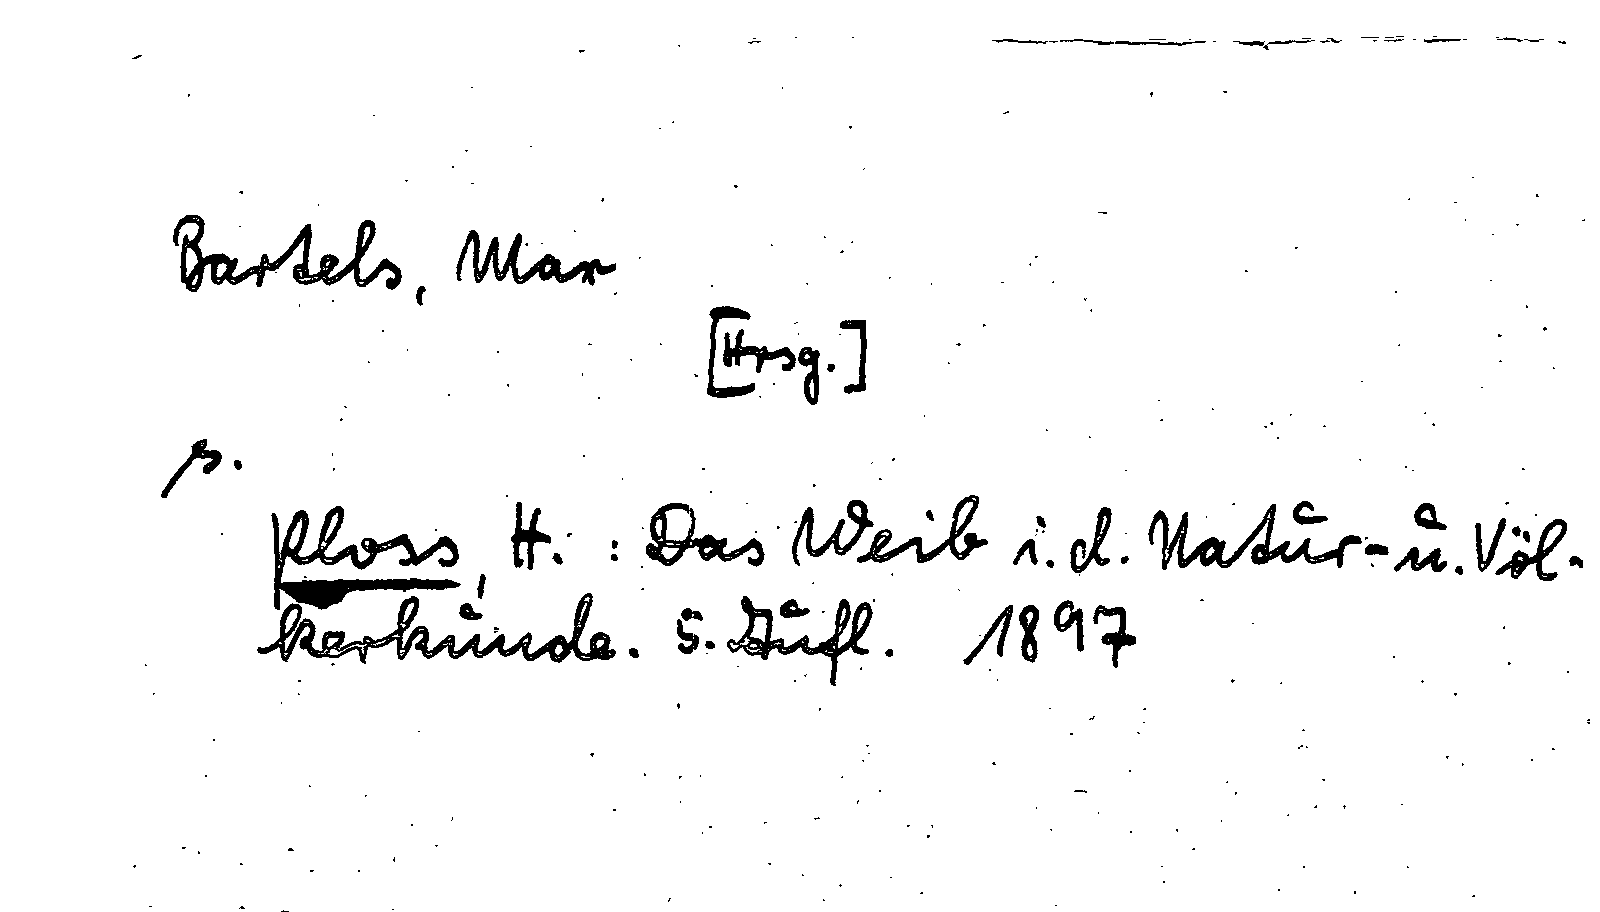 Bartels, Max
[Hrsg.]
s.
Ploss, H. : Das Weib i. d. Natur- u. Völ-
kerkunde. 5. Aufl. 1897